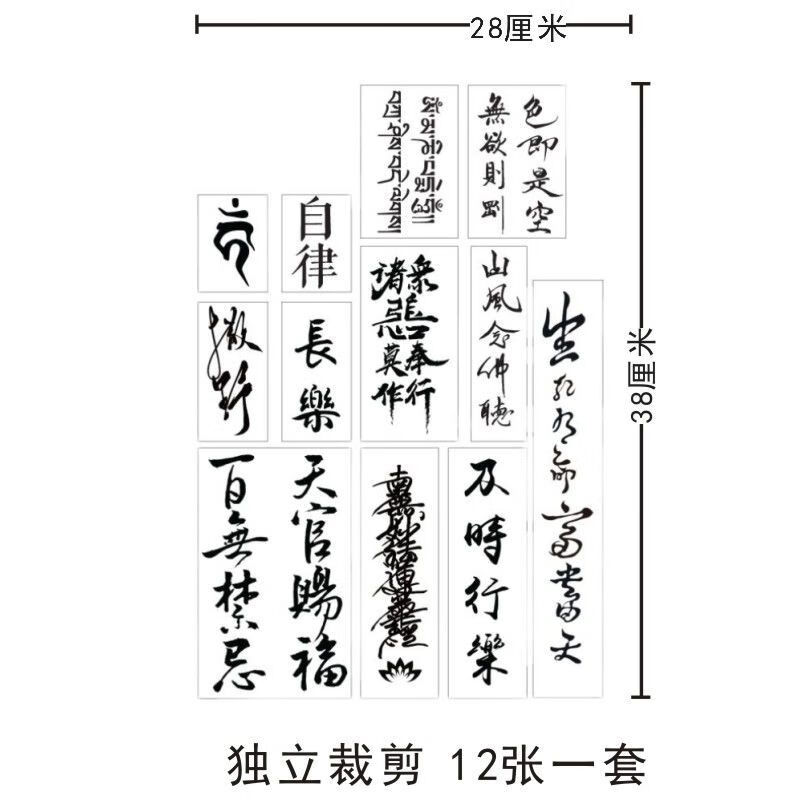 28厘米
38厘米
色即是空
無欲則剛
自律
撒野
長樂
眾善奉行
諸惡莫作
山風念佛聽
生死有命富貴在天
天官賜福
百無禁忌
南無妙法蓮華經
及時行樂
独立裁剪 12张一套